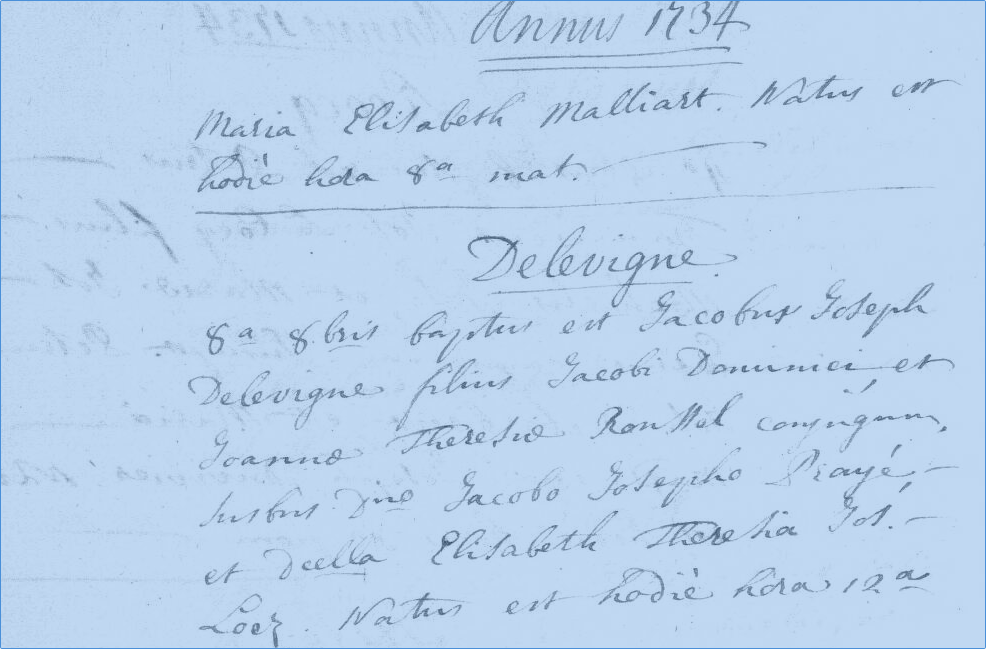 Annus 1734
Maria Elisabeth Malliart. Natus est
hodiè hora 8a mat.
Delevigne.
8a 8bris baptus est Jacobus Joseph
Delevigne filius Jacobi Dominici et
Joannæ Theresiæ Roussel conjugum,
susbus Dno Jacobo Josepho Prayé,
et Dcella Elisabeth Theresia Jos.
Loez. Natus est hodiè hora 12a